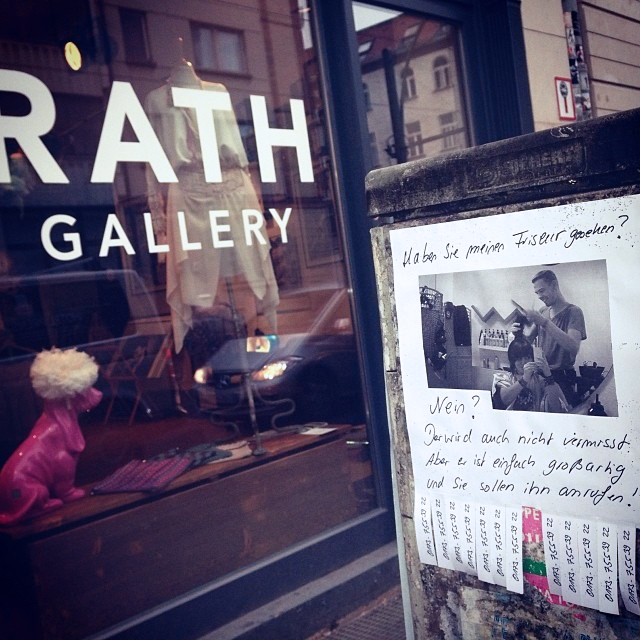 RATH
GALLERY
Haben Sie meinen Friseur gesehen?
Nein?
Der wird auch nicht vermisst.
Aber er ist einfach großartig
und Sie sollen ihn anrufen!